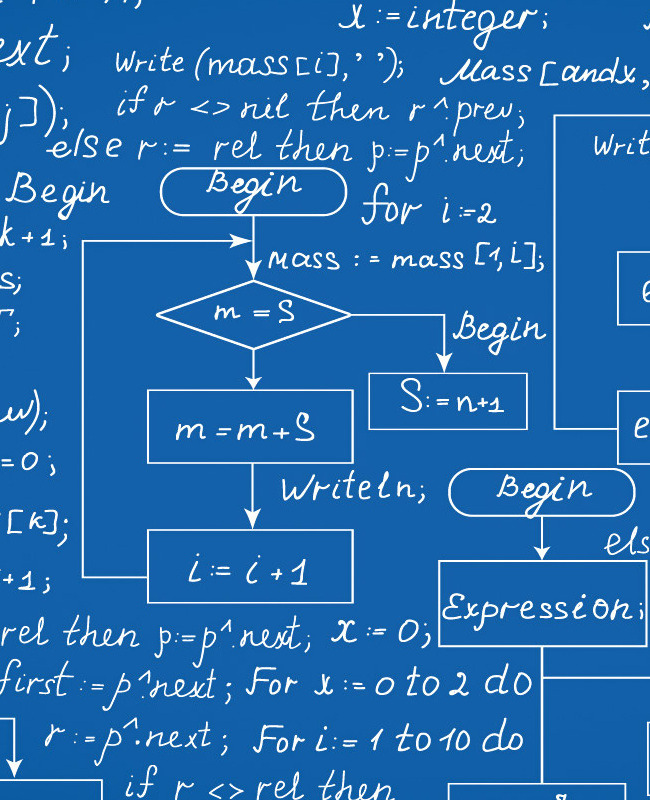 x := integer;
ext;
Write (mass[i],' ');
Mass [andx,
if r <> nil then r^.prev;
j]);
else r := rel then p:=p^.next;
Writ
Begin
Begin
for i :=2
k +1;
Mass : = mass [1,i];
s;
m = S
Begin
S: = n+1
m = m + S
= 0 ;
Writeln;
Begin
[k];
els
i := i + 1
+1 ;
Expression;
rel then p:=p^.next; x := 0;
first := p^.next ; For x := 0 to 2 do
r := p^.next ; For i := 1 to 10 do
if r <> rel then